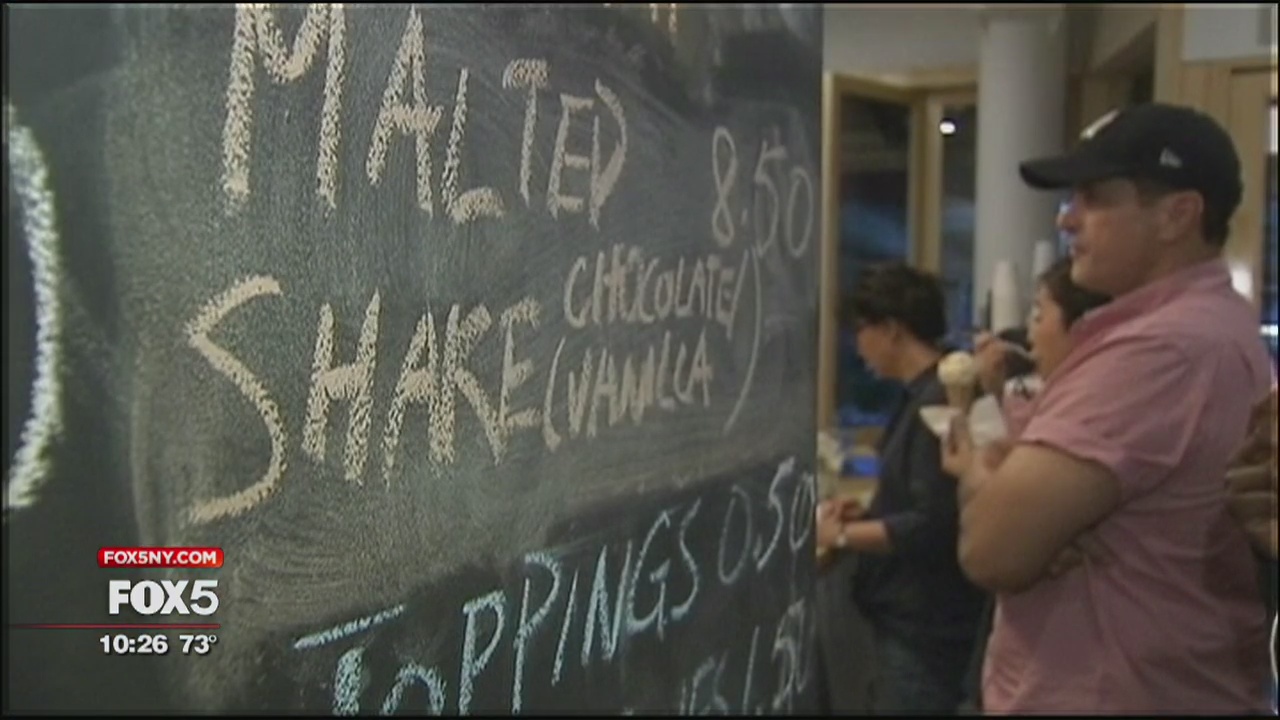 MALTED 8.50
SHAKE (CHOCOLATE/
VANILLA)
TOPPINGS 0.50
1.50
FOX5NY.COM
FOX5
10:26 73°